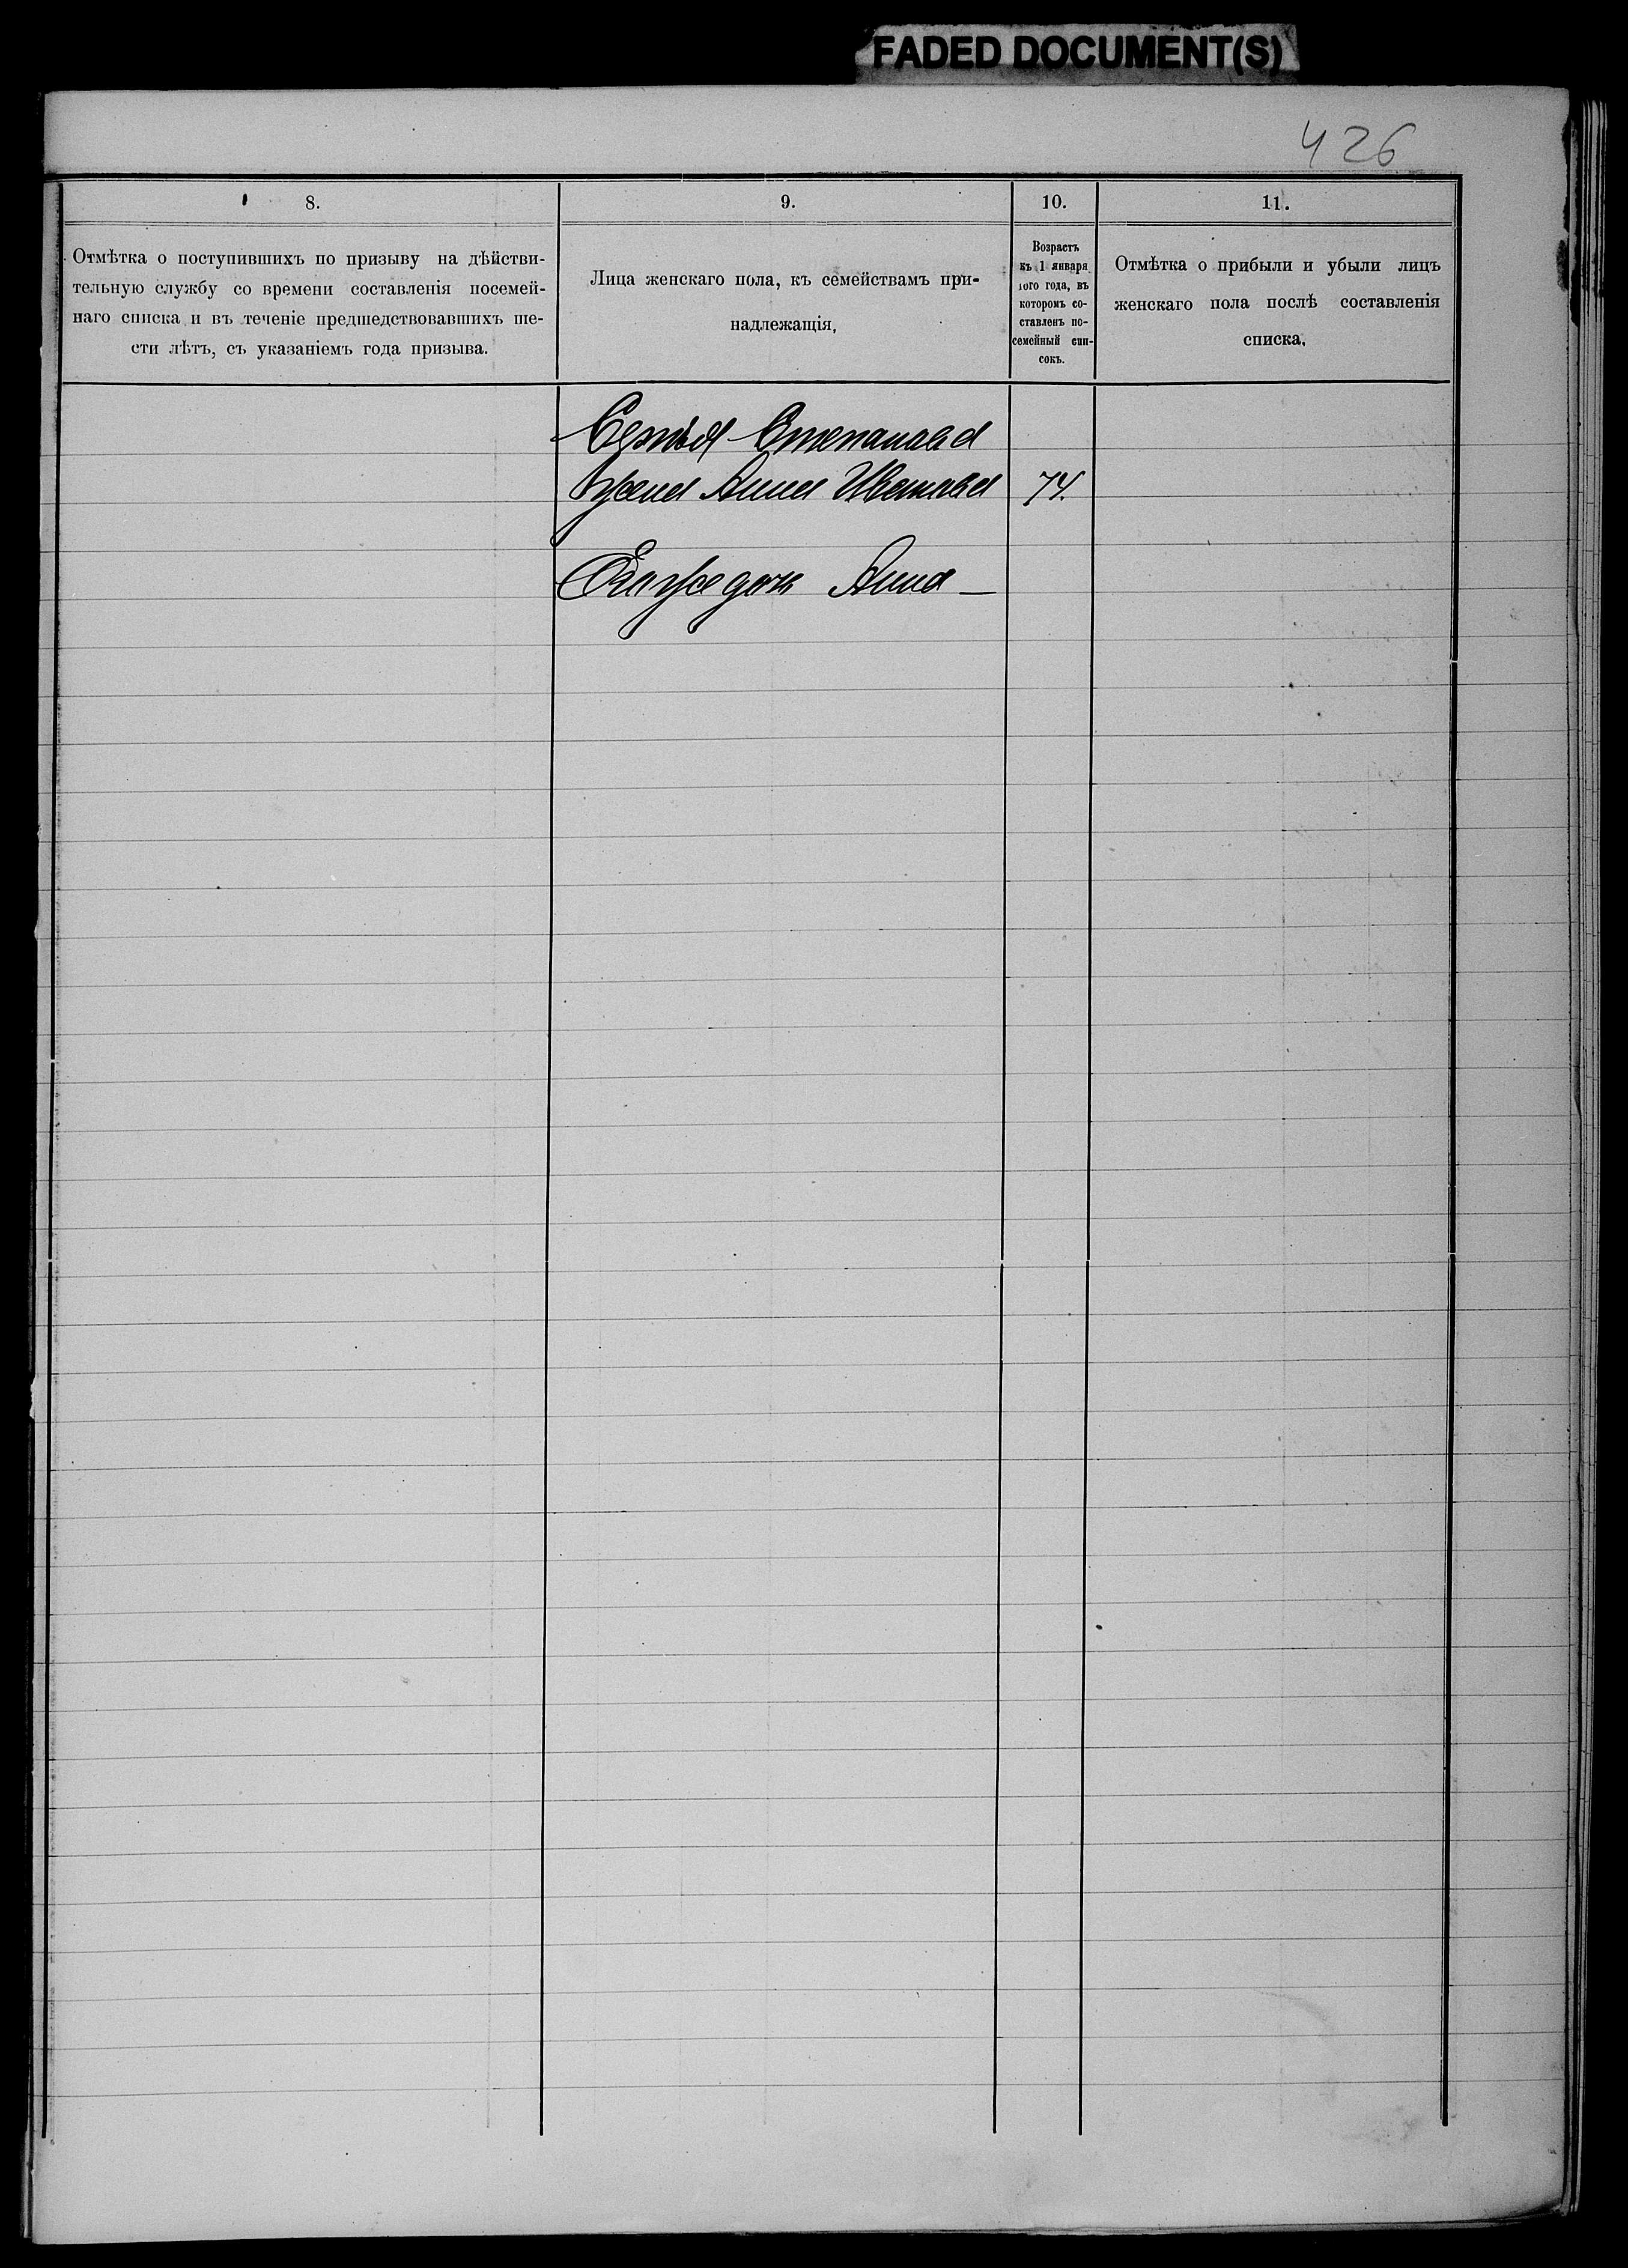 FADED DOCUMENT(S)
426
8.
9.
10.
11.
Отмѣтка о поступившихъ по призыву на дѣйстви-
тельную службу со времени составленія посемей-
наго списка и въ теченіе предшедствовавшихъ ше-
сти лѣтъ, съ указаніемъ года призыва.
Лица женскаго пола, къ семействамъ при-
надлежащія.
Возрастъ
къ 1 января
того года, въ
которомъ со-
ставленъ по-
семейный спи-
сокъ.
Отмѣтка о прибыли и убыли лицъ
женскаго пола послѣ составленія
списка.
Семья Степанова
Жена Анна Иванова 74.
Его же дочь Анна —